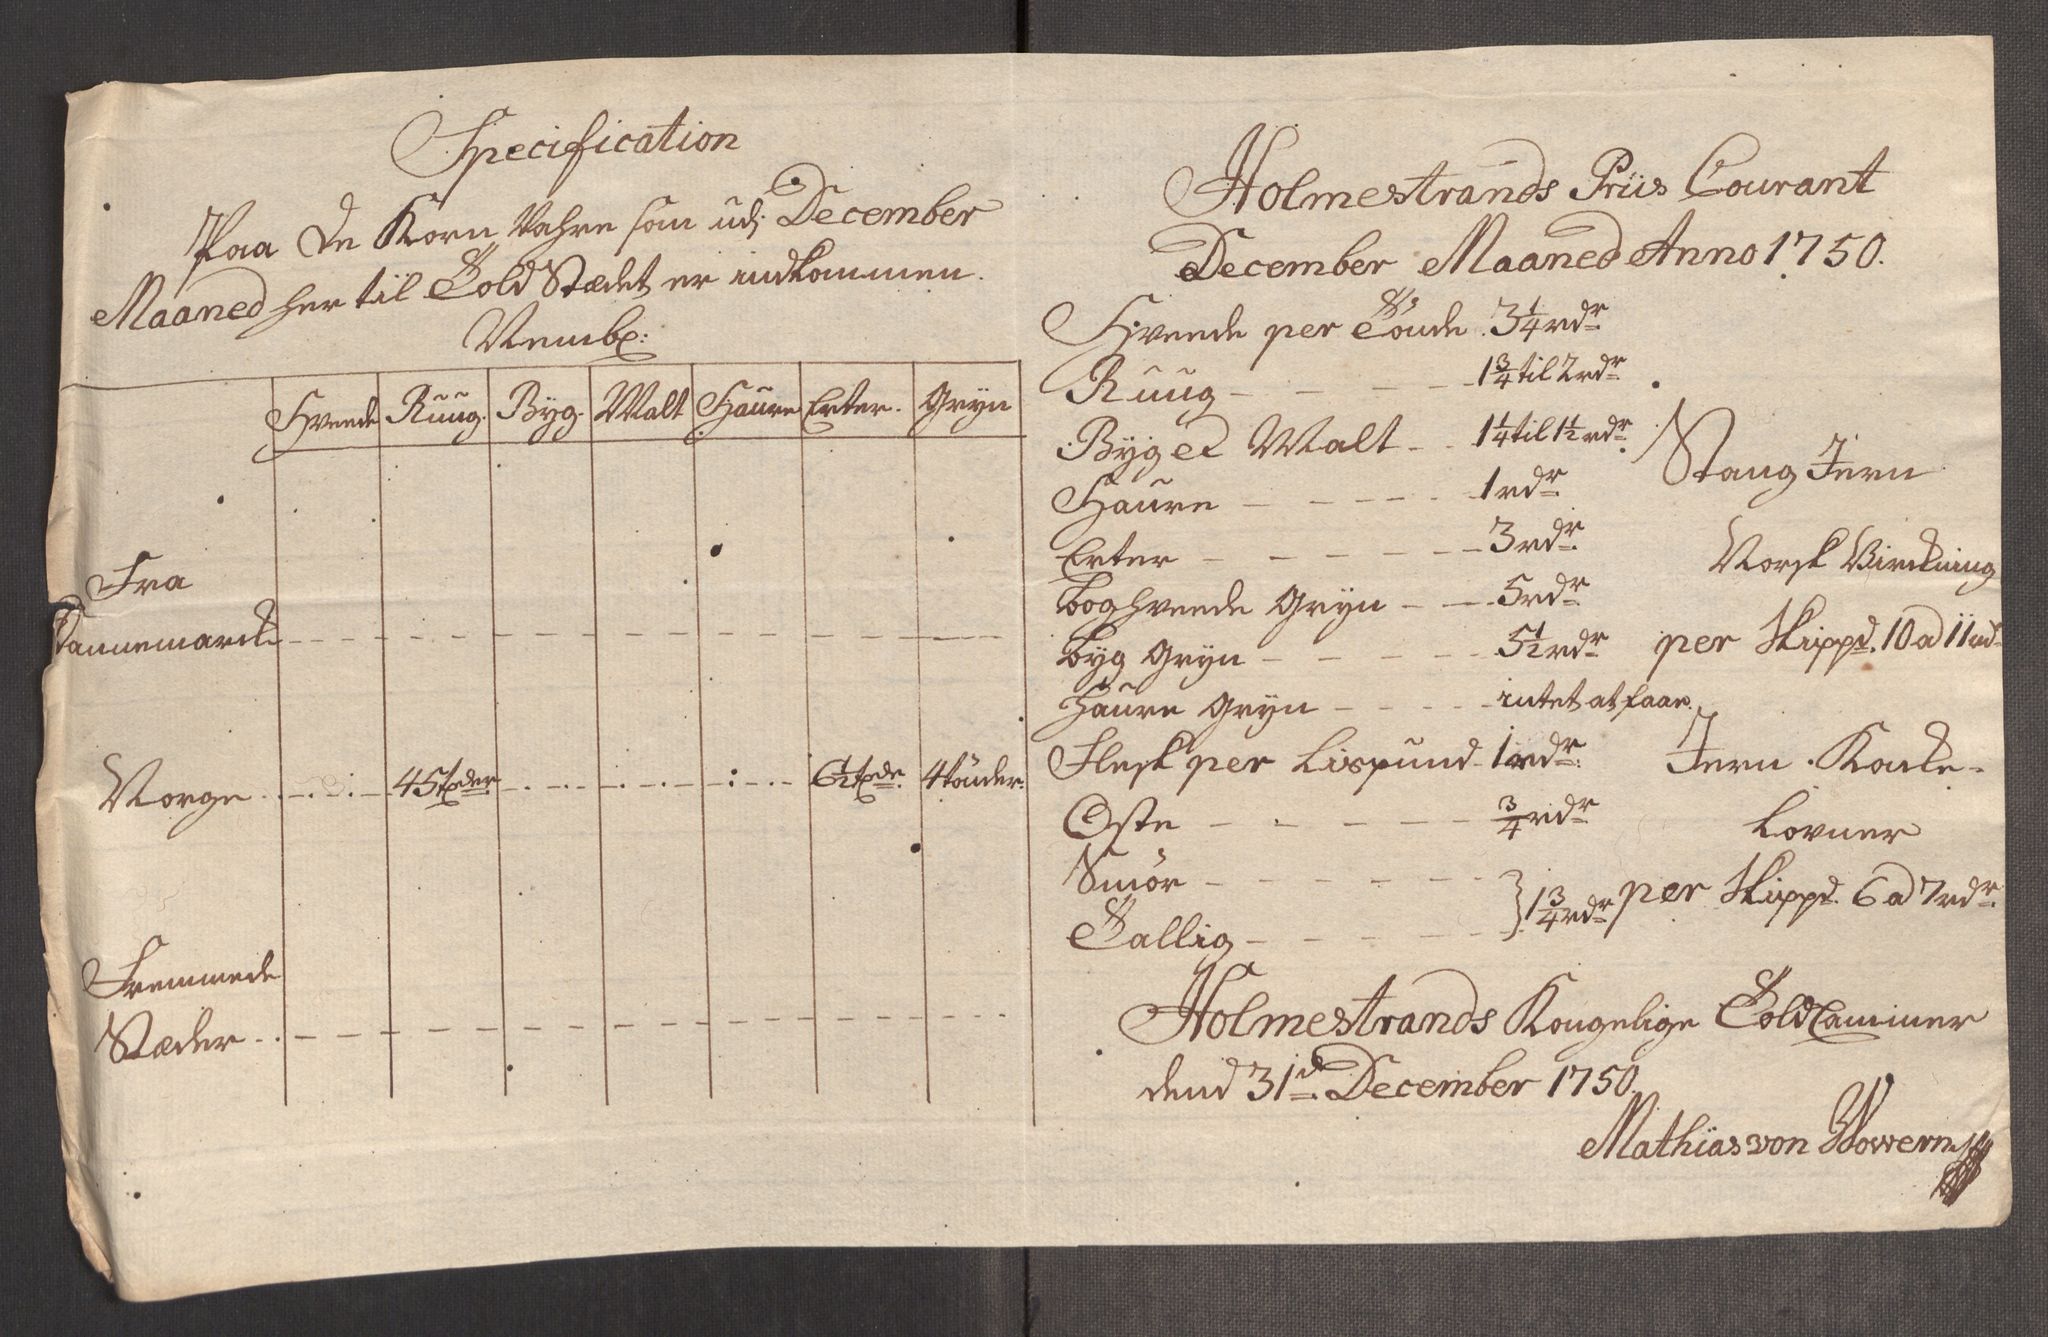 Specification
Paa De Korn Vahre som udj December
Maaned her til Told Stædet er indkommen.
Nembl:
Hveede Ruug. Byg. Malt Haure Erter. Gryn
Fra
Dannemarck
Norge 45 tdr 6½ tde. 4 tönder
Fremmede
Stæder
Holmestrands Priis Courant
December Maaned Anno 1750.
Hveede per Tönde 3¼ rdr
Ruug 1¾ til 2 rdr
Byg et Malt 1¼ til 1½ rdr
Haure 1 rdr
Erter 3 rdr
boghveede Gryn 5 rdr
byg Gryn 5½ rdr
haure Gryn intet at faae.
Flesk per Lispund 1 rdr
Oste ¾ rdr
Smör
Tallig } 1¾ rdr
Stang Jern
Norsk Virckning
per Skippd. 10 a 11 rd
Jern Kacke-
lovner
per Skippd. 6 a 7 rdr.
Holmestrands Kongelige Told Cammer
dend 31d December 1750.
Mathias von Wowern